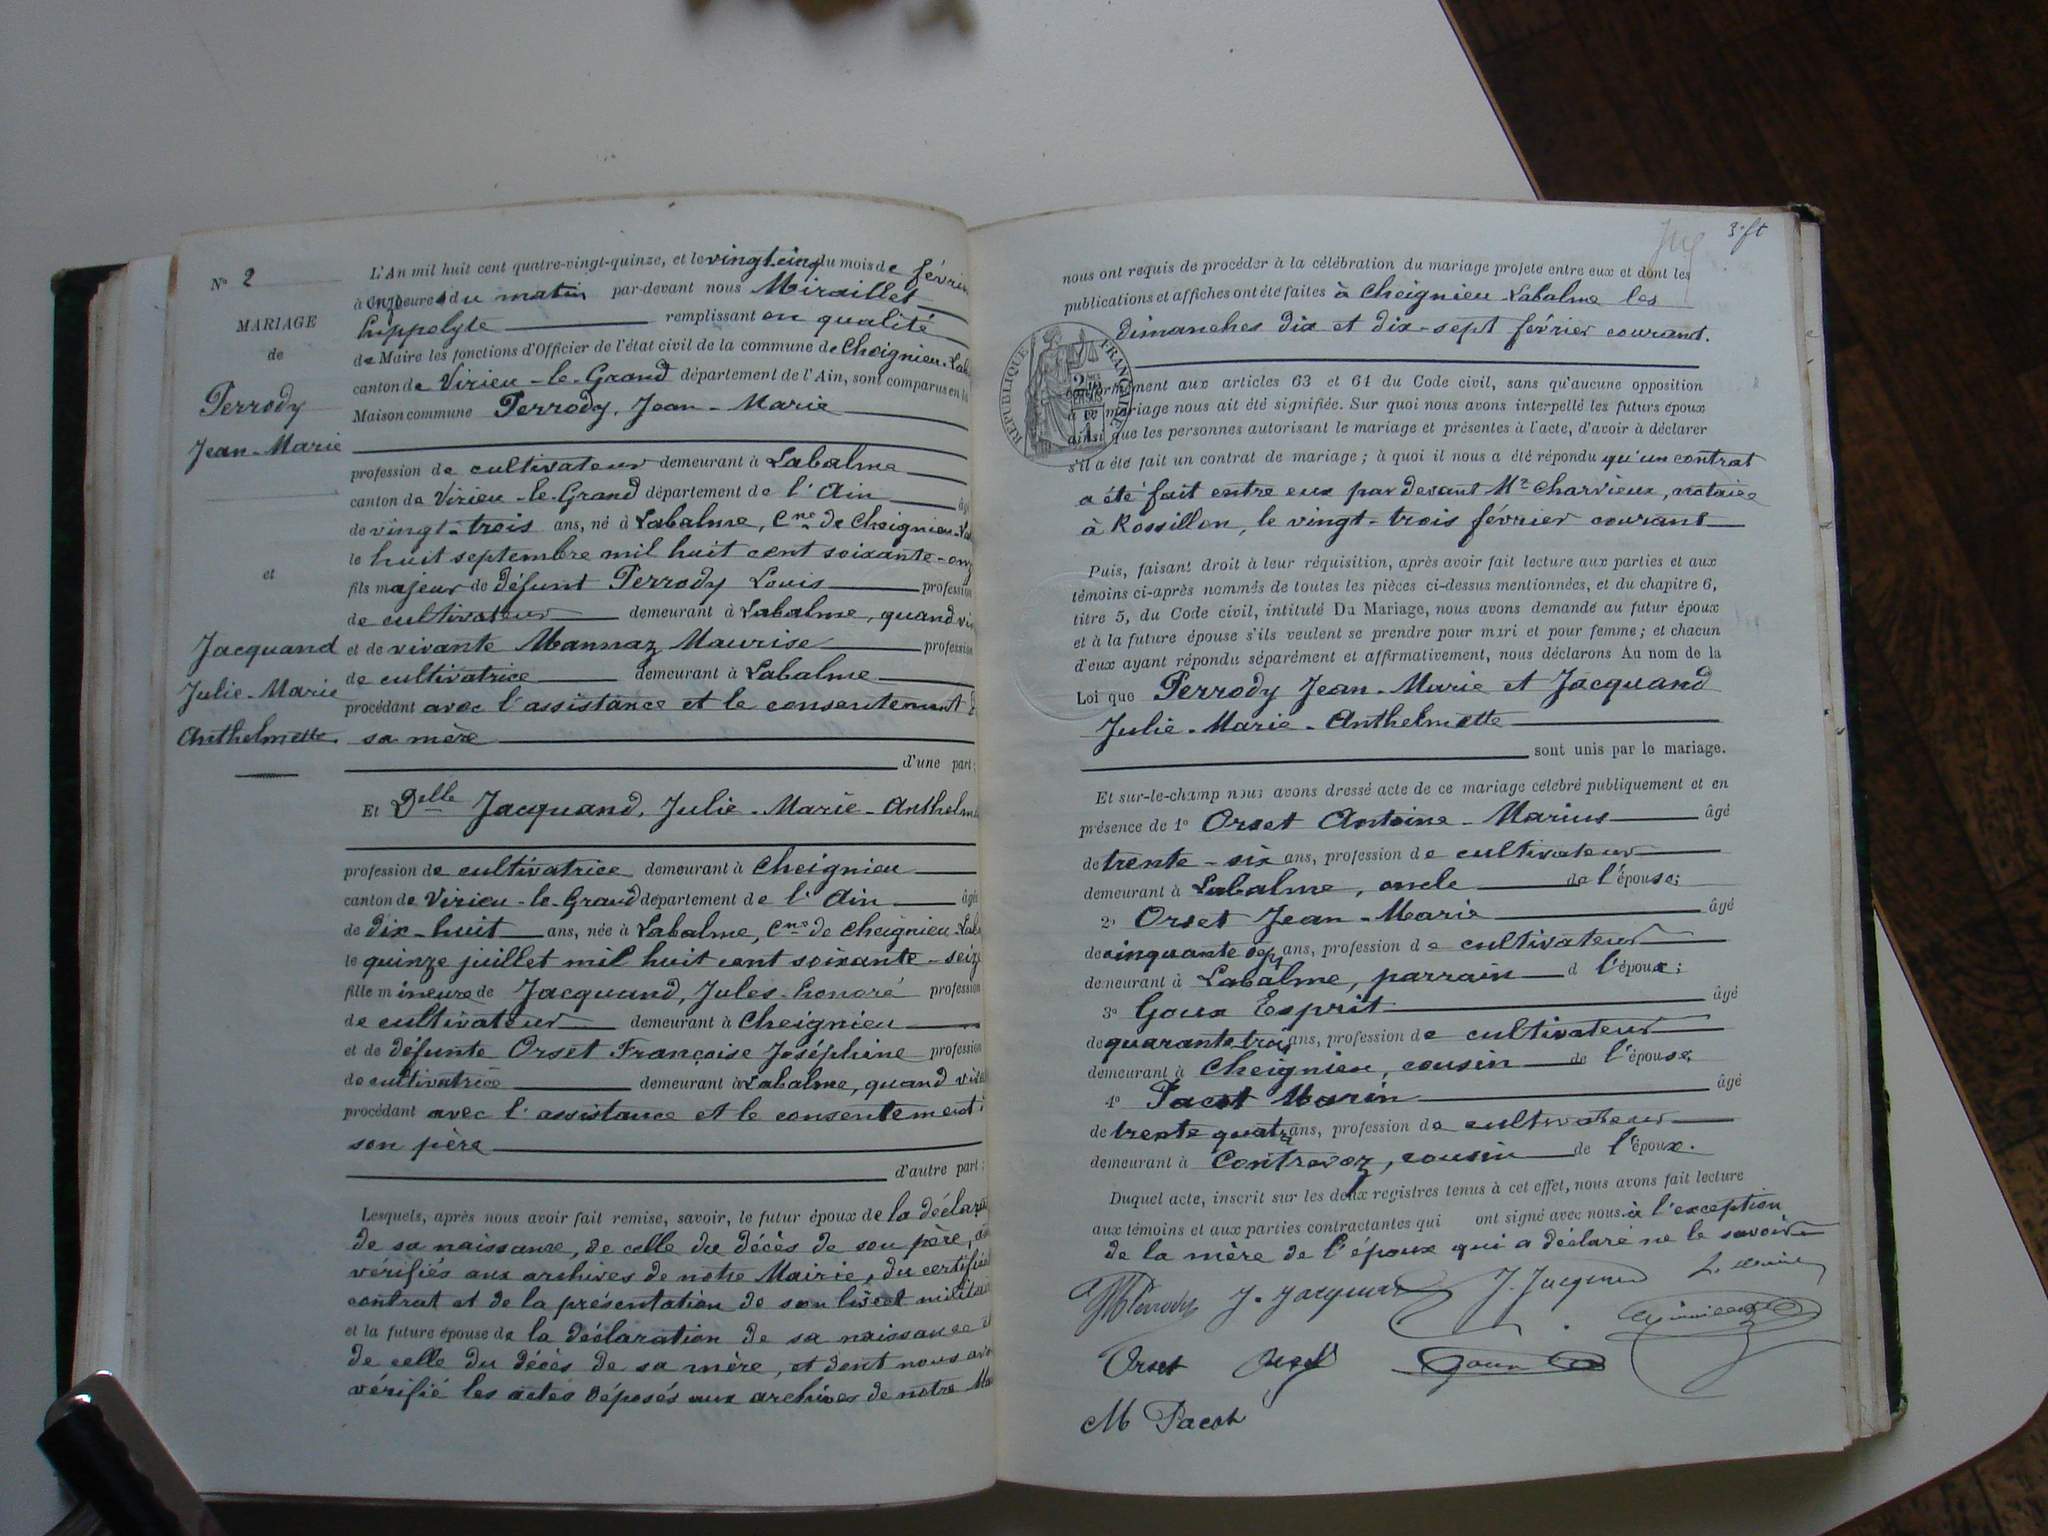 N° 2
MARIAGE
de
Perrody
Jean-Marie
et
Jacquand
Julie-Marie
Anthelmette.
L'An mil huit cent quatre-vingt-quinze, et le vingt-cinq du mois de févrie
à onze heures du matin par-devant nous Miraillet
hippolyte remplissant en qualité
de Maire les fonctions d'Officier de l'état civil de la commune de Cheignieu-Lab
canton de Virieu-le-Grand département de l'Ain, sont comparus en la
Maison commune Perrody, Jean-Marie
profession de cultivateur demeurant à Labalme
canton de Virieu-le-Grand département de l'Ain âg
de vingt-trois ans, né à Labalme, Cne de Cheignieu-La
le huit septembre mil huit cent soixante-onz
fils majeur de défunt Perrody Louis profession
de cultivateur demeurant à Labalme, quand viv
et de vivante Mannaz Maurise profession
de cultivatrice demeurant à Labalme
procédant avec l'assistance et le consentement d
sa mère
d'une part;
Et Delle Jacquand, Julie-Marie-Anthelm
profession de cultivatrice demeurant à Cheignieu
canton de Virieu-le-Grand département de l'Ain âgé
de dix-huit ans, née à Labalme, Cne de Cheignieu-Lab
le quinze juillet mil huit cent soixante-seiz
fille mineure de Jacquand, Jules-honoré profession
de cultivateur demeurant à Cheignieu
et de défunte Orset Françoise Joséphine profession
de cultivatrice demeurant à Labalme, quand viv
procédant avec l'assistance et le consentement
son père
d'autre part;
Lesquels, après nous avoir fait remise, savoir, le futur époux de la déclara
de sa naissance, de celle du décès de son père,
vérifiés aux archives de notre Mairie, du certificat
contrat et de la présentation de son livret militai
et la future épouse de la déclaration de sa naissance
de celle du décès de sa mère, et dont nous avo
vérifié les actes déposés aux archives de notre Ma
3e ft
nous ont requis de procéder à la célébration du mariage projeté entre eux et dont les
publications et affiches ont été faites à Cheignieu-Labalme les
dimanches dix et dix-sept février courant.
RÉPUBLIQUE FRANÇAISE
conformément aux articles 63 et 64 du Code civil, sans qu'aucune opposition
à ce mariage nous ait été signifiée. Sur quoi nous avons interpellé les futurs époux
ainsi que les personnes autorisant le mariage et présentes à l'acte, d'avoir à déclarer
s'il a été fait un contrat de mariage; à quoi il nous a été répondu qu'un contrat
a été fait entre eux par devant Me Charvieux, notaire
à Rossillon, le vingt-trois février courant
Puis, faisant droit à leur réquisition, après avoir fait lecture aux parties et aux
témoins ci-après nommés de toutes les pièces ci-dessus mentionnées, et du chapitre 6,
titre 5, du Code civil, intitulé Du Mariage, nous avons demandé au futur époux
et à la future épouse s'ils veulent se prendre pour mari et pour femme; et chacun
d'eux ayant répondu séparément et affirmativement, nous déclarons Au nom de la
Loi que Perrody Jean-Marie et Jacquand
Julie-Marie-Anthelmette
sont unis par le mariage.
Et sur-le-champ nous avons dressé acte de ce mariage célébré publiquement et en
présence de 1° Orset Antoine-Marius âgé
de trente-six ans, profession de cultivateur
demeurant à Labalme, oncle de l'épouse;
2° Orset Jean-Marie âgé
de cinquante sept ans, profession de cultivateur
demeurant à Labalme, parrain d l'époux;
3° Goux Esprit âgé
de quarante trois ans, profession de cultivateur
demeurant à Cheignieu, cousin de l'épouse;
4° Pacot Marin âgé
de trente quatre ans, profession de cultivateur
demeurant à Contrevoz, cousin de l'époux.
Duquel acte, inscrit sur les deux registres tenus à cet effet, nous avons fait lecture
aux témoins et aux parties contractantes qui ont signé avec nous à l'exception
de la mère de l'époux qui a déclaré ne le savoir
JM Perrody J. Jacquand J. Jacquand
Orset Orset Goux
M Pacot